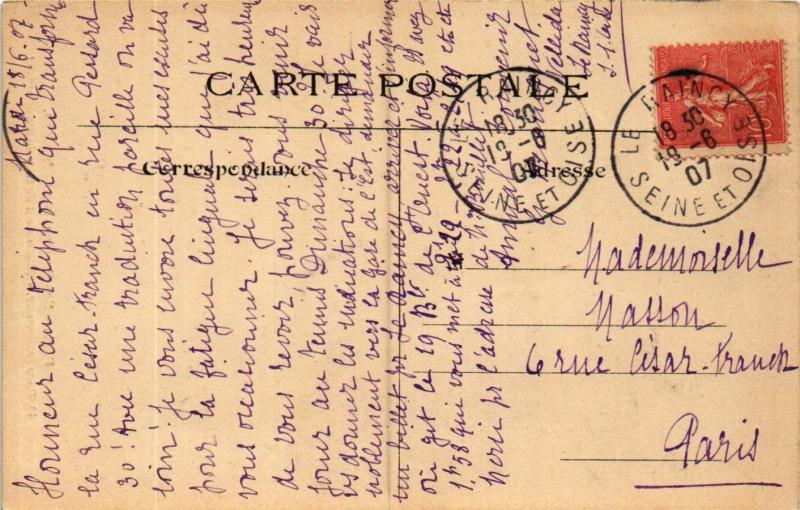 CARTE POSTALE
Correspondance
Adresse
Mardi 18.6.07
Honneur au téléphone qui transforme
la rue César-Franck en rue
30! Avec une traduction pareille on va
loin! Je vous envoie toutes mes excuses
pour la fatigue linguale que j'ai dû
vous occasionner. Je serais très heureux
de vous revoir. Pouvez-vous venir
jouer au tennis Dimanche 30? Je vais
vs donner les indications: se diriger
noblement vers la Gare de l'Est, demander
un billet pr Le Raincy
où gît le 19 Bd de l'Ouest. Vous avez
1h58 qui vous met à 2h22
Merci pr l'adresse de
Amical souvenir
Le Raincy
S.-et-Oise
LE RAINCY
18 30
19 -6
07
SEINE ET OISE
LE RAINCY
18 30
19 -6
07
SEINE ET OISE
Mademoiselle
Masson
6 rue César-Franck
Paris